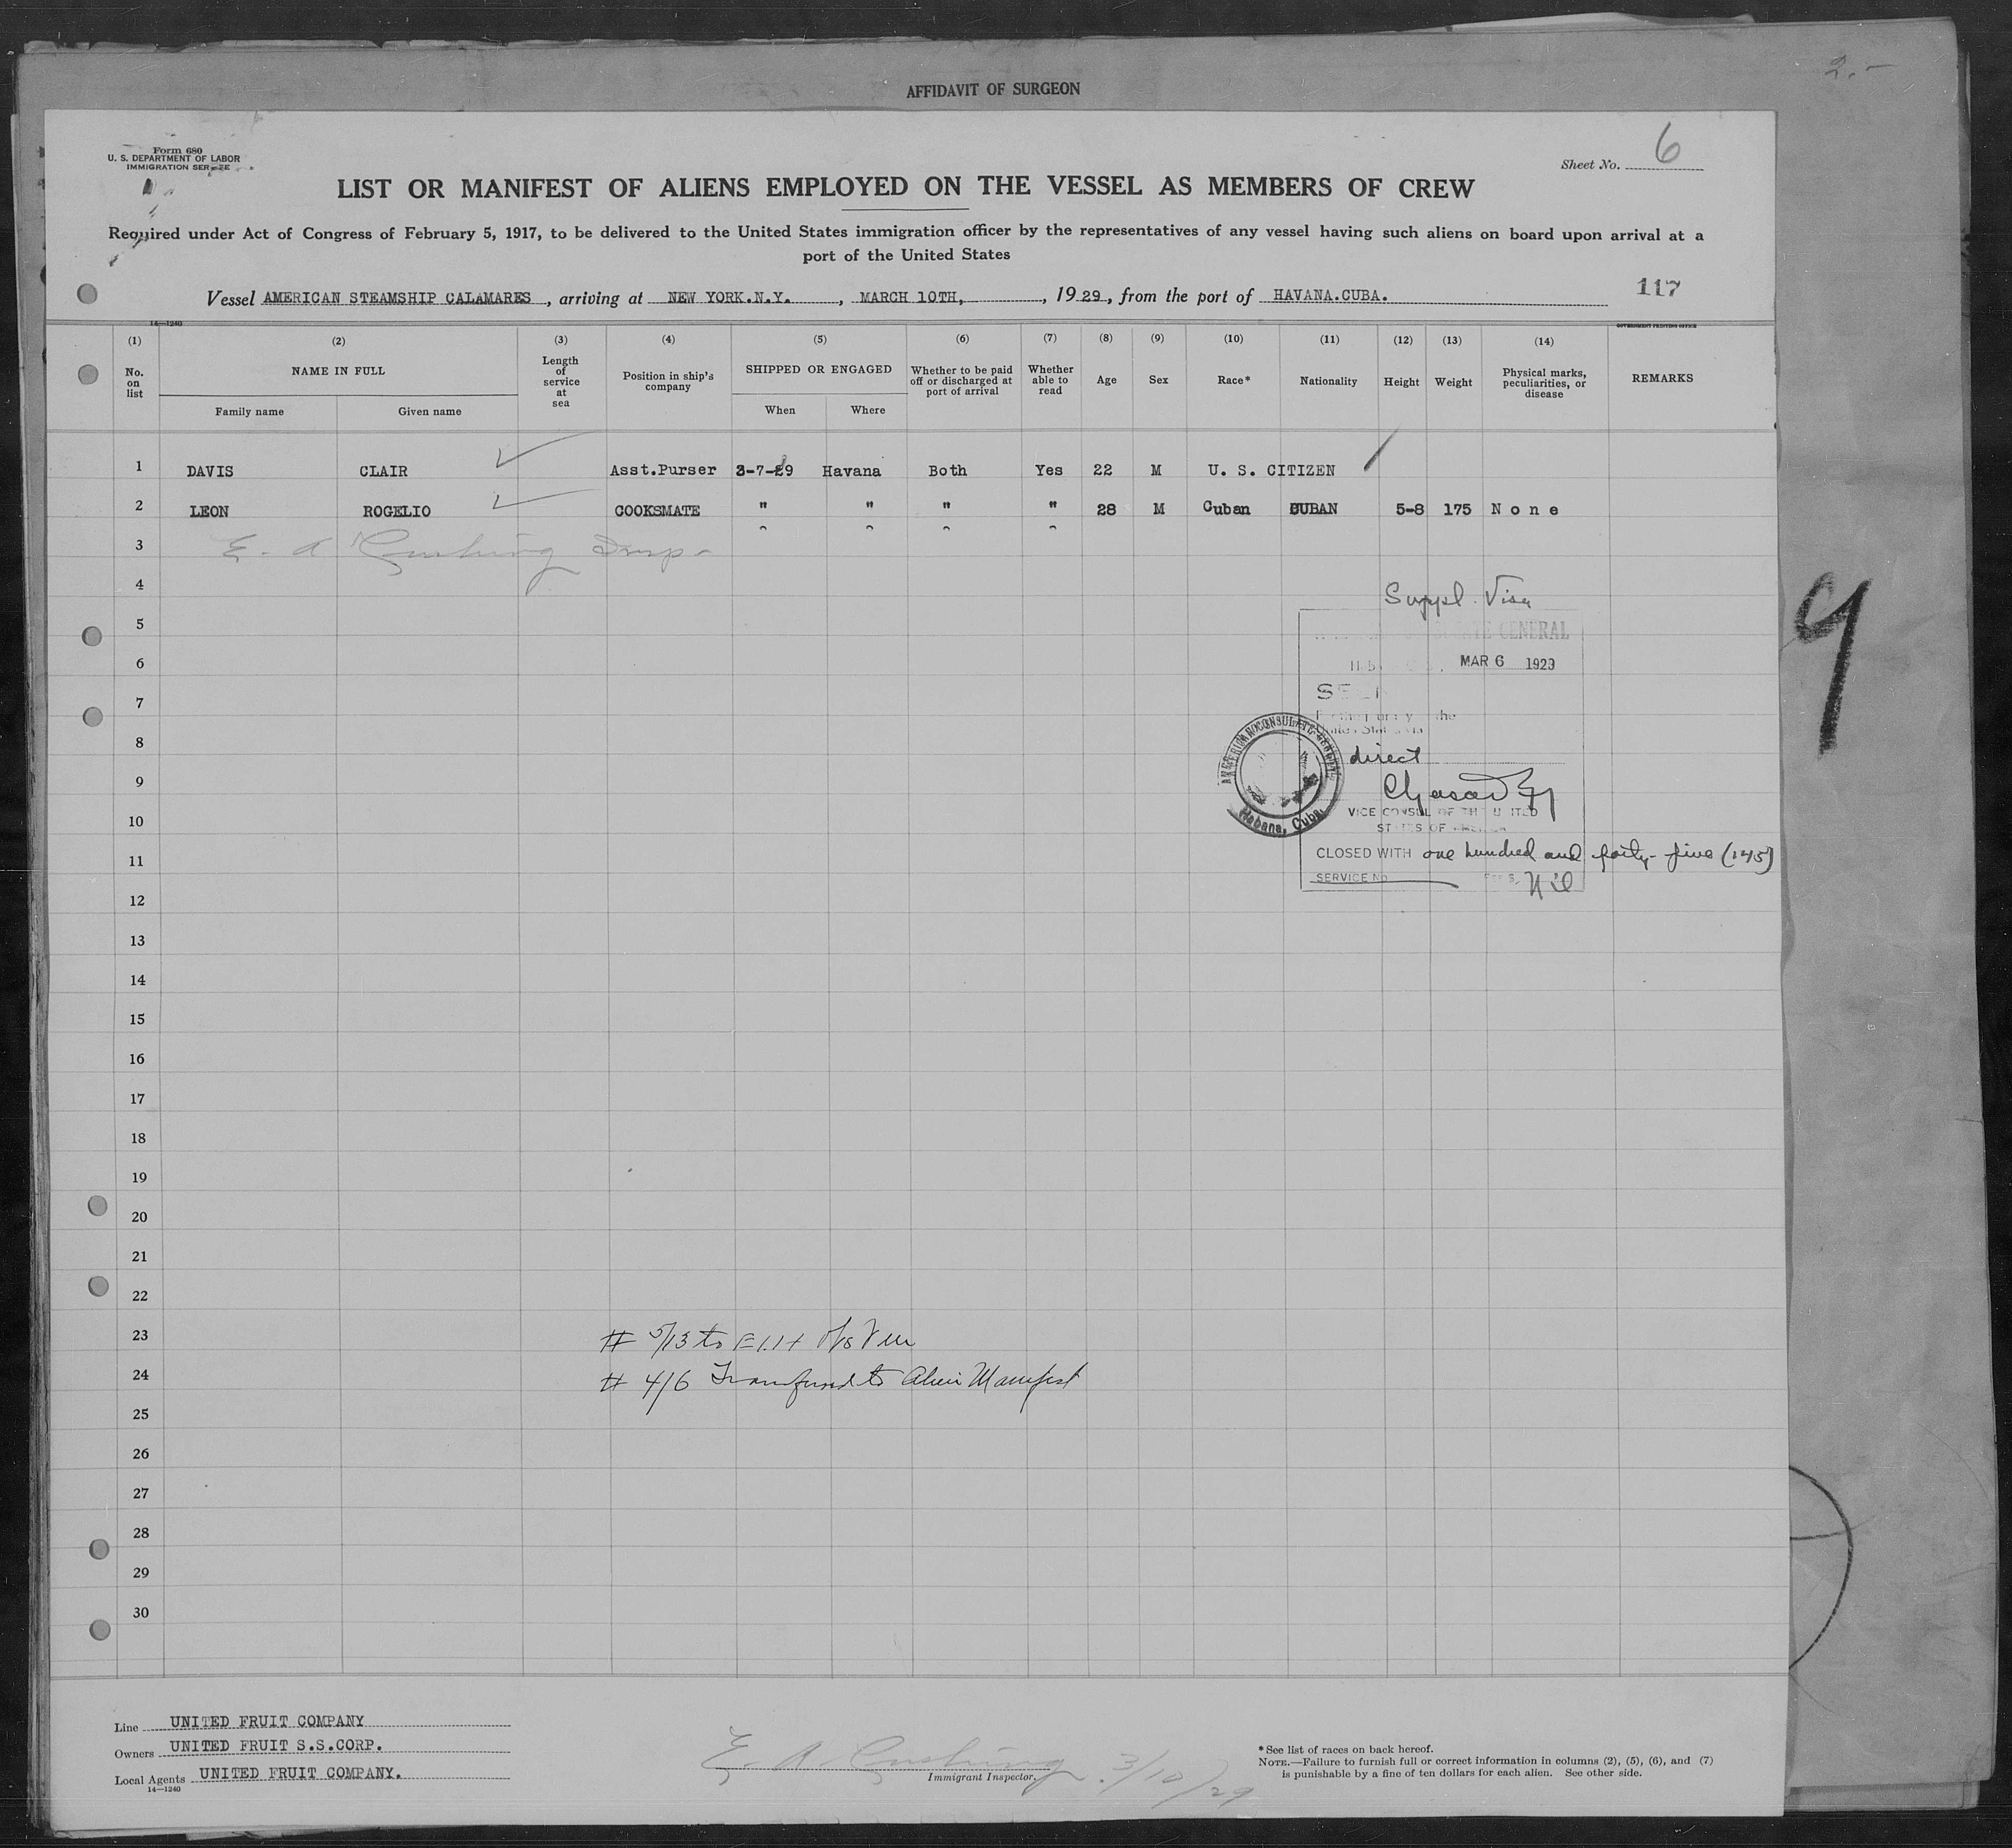 2.-
AFFIDAVIT OF SURGEON
Form 680
U. S. DEPARTMENT OF LABOR
IMMIGRATION SERVICE
Sheet No. 6
LIST OR MANIFEST OF ALIENS EMPLOYED ON THE VESSEL AS MEMBERS OF CREW
Required under Act of Congress of February 5, 1917, to be delivered to the United States immigration officer by the representatives of any vessel having such aliens on board upon arrival at a
port of the United States
Vessel AMERICAN STEAMSHIP CALAMARES, arriving at NEW YORK.N.Y., MARCH 10TH, , 1929, from the port of HAVANA.CUBA.
117
14—1240
GOVERNMENT PRINTING OFFICE
(1) (2) (3) (4) (5) (6) (7) (8) (9) (10) (11) (12) (13) (14)
No. on list
NAME IN FULL
Family name Given name
Length of service at sea
Position in ship's company
SHIPPED OR ENGAGED
When Where
Whether to be paid off or discharged at port of arrival
Whether able to read
Age Sex Race* Nationality Height Weight
Physical marks, peculiarities, or disease
REMARKS
1 DAVIS CLAIR Asst.Purser 3-7-29 Havana Both Yes 22 M U. S. CITIZEN
2 LEON ROGELIO COOKSMATE " " " " 28 M Cuban CUBAN 5-8 175 None
3 E. A Cushing Insp-
4 Suppl. Visa
5 CONSULATE GENERAL
6 MAR 6 1929
7 SEEN
the
8 AMERICAN CONSULATE GENERAL
direct
9
Habana, Cuba
10 VICE CONSUL OF THE UNITED
STATES OF AMERICA
11 CLOSED WITH one hundred and forty-five (145)
SERVICE No Fees, Nil
12
13
14
15
16
17
18
19
20
21
22
23 # 5/13 to
24 # 4/6 Transferred to Alien Manifest
25
26
27
28
29
30
9
Line UNITED FRUIT COMPANY
Owners UNITED FRUIT S.S.CORP.
Local Agents UNITED FRUIT COMPANY.
14—1240
E. A. Cushing 3/10/29
Immigrant Inspector.
*See list of races on back hereof.
NOTE.—Failure to furnish full or correct information in columns (2), (5), (6), and (7)
is punishable by a fine of ten dollars for each alien. See other side.